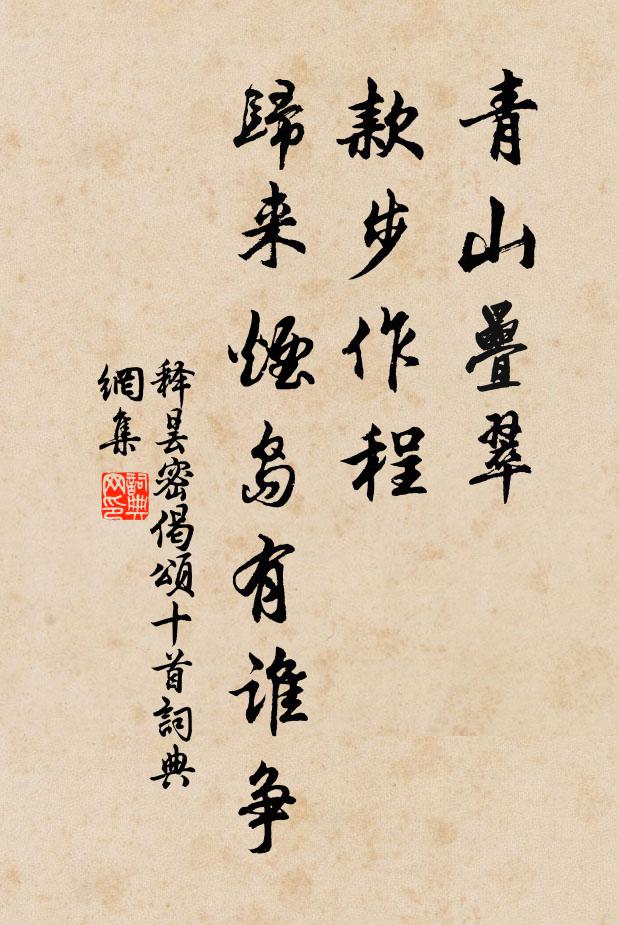 青山疊翠
款步作程
歸来煙岛有谁争
释曇密偈頌十首詞典
網集
詞典
网印